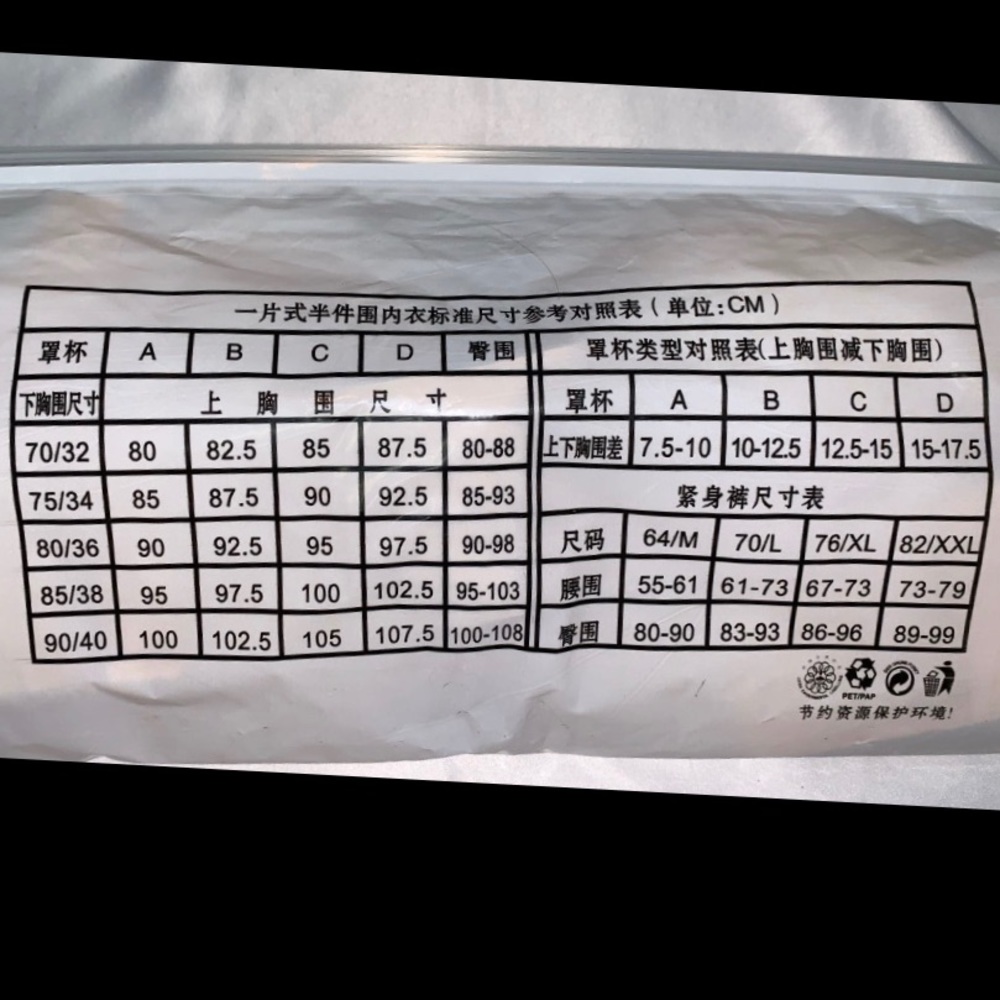 一片式半件围内衣标准尺寸参考对照表（单位:CM）
罩杯 A B C D 臀围
下胸围尺寸 上胸围尺寸
70/32 80 82.5 85 87.5 80-88
75/34 85 87.5 90 92.5 85-93
80/36 90 92.5 95 97.5 90-98
85/38 95 97.5 100 102.5 95-103
90/40 100 102.5 105 107.5 100-108
罩杯类型对照表(上胸围减下胸围)
罩杯 A B C D
上下胸围差 7.5-10 10-12.5 12.5-15 15-17.5
紧身裤尺寸表
尺码 64/M 70/L 76/XL 82/XXL
腰围 55-61 61-73 67-73 73-79
臀围 80-90 83-93 86-96 89-99
PET/PAP
节约资源保护环境!